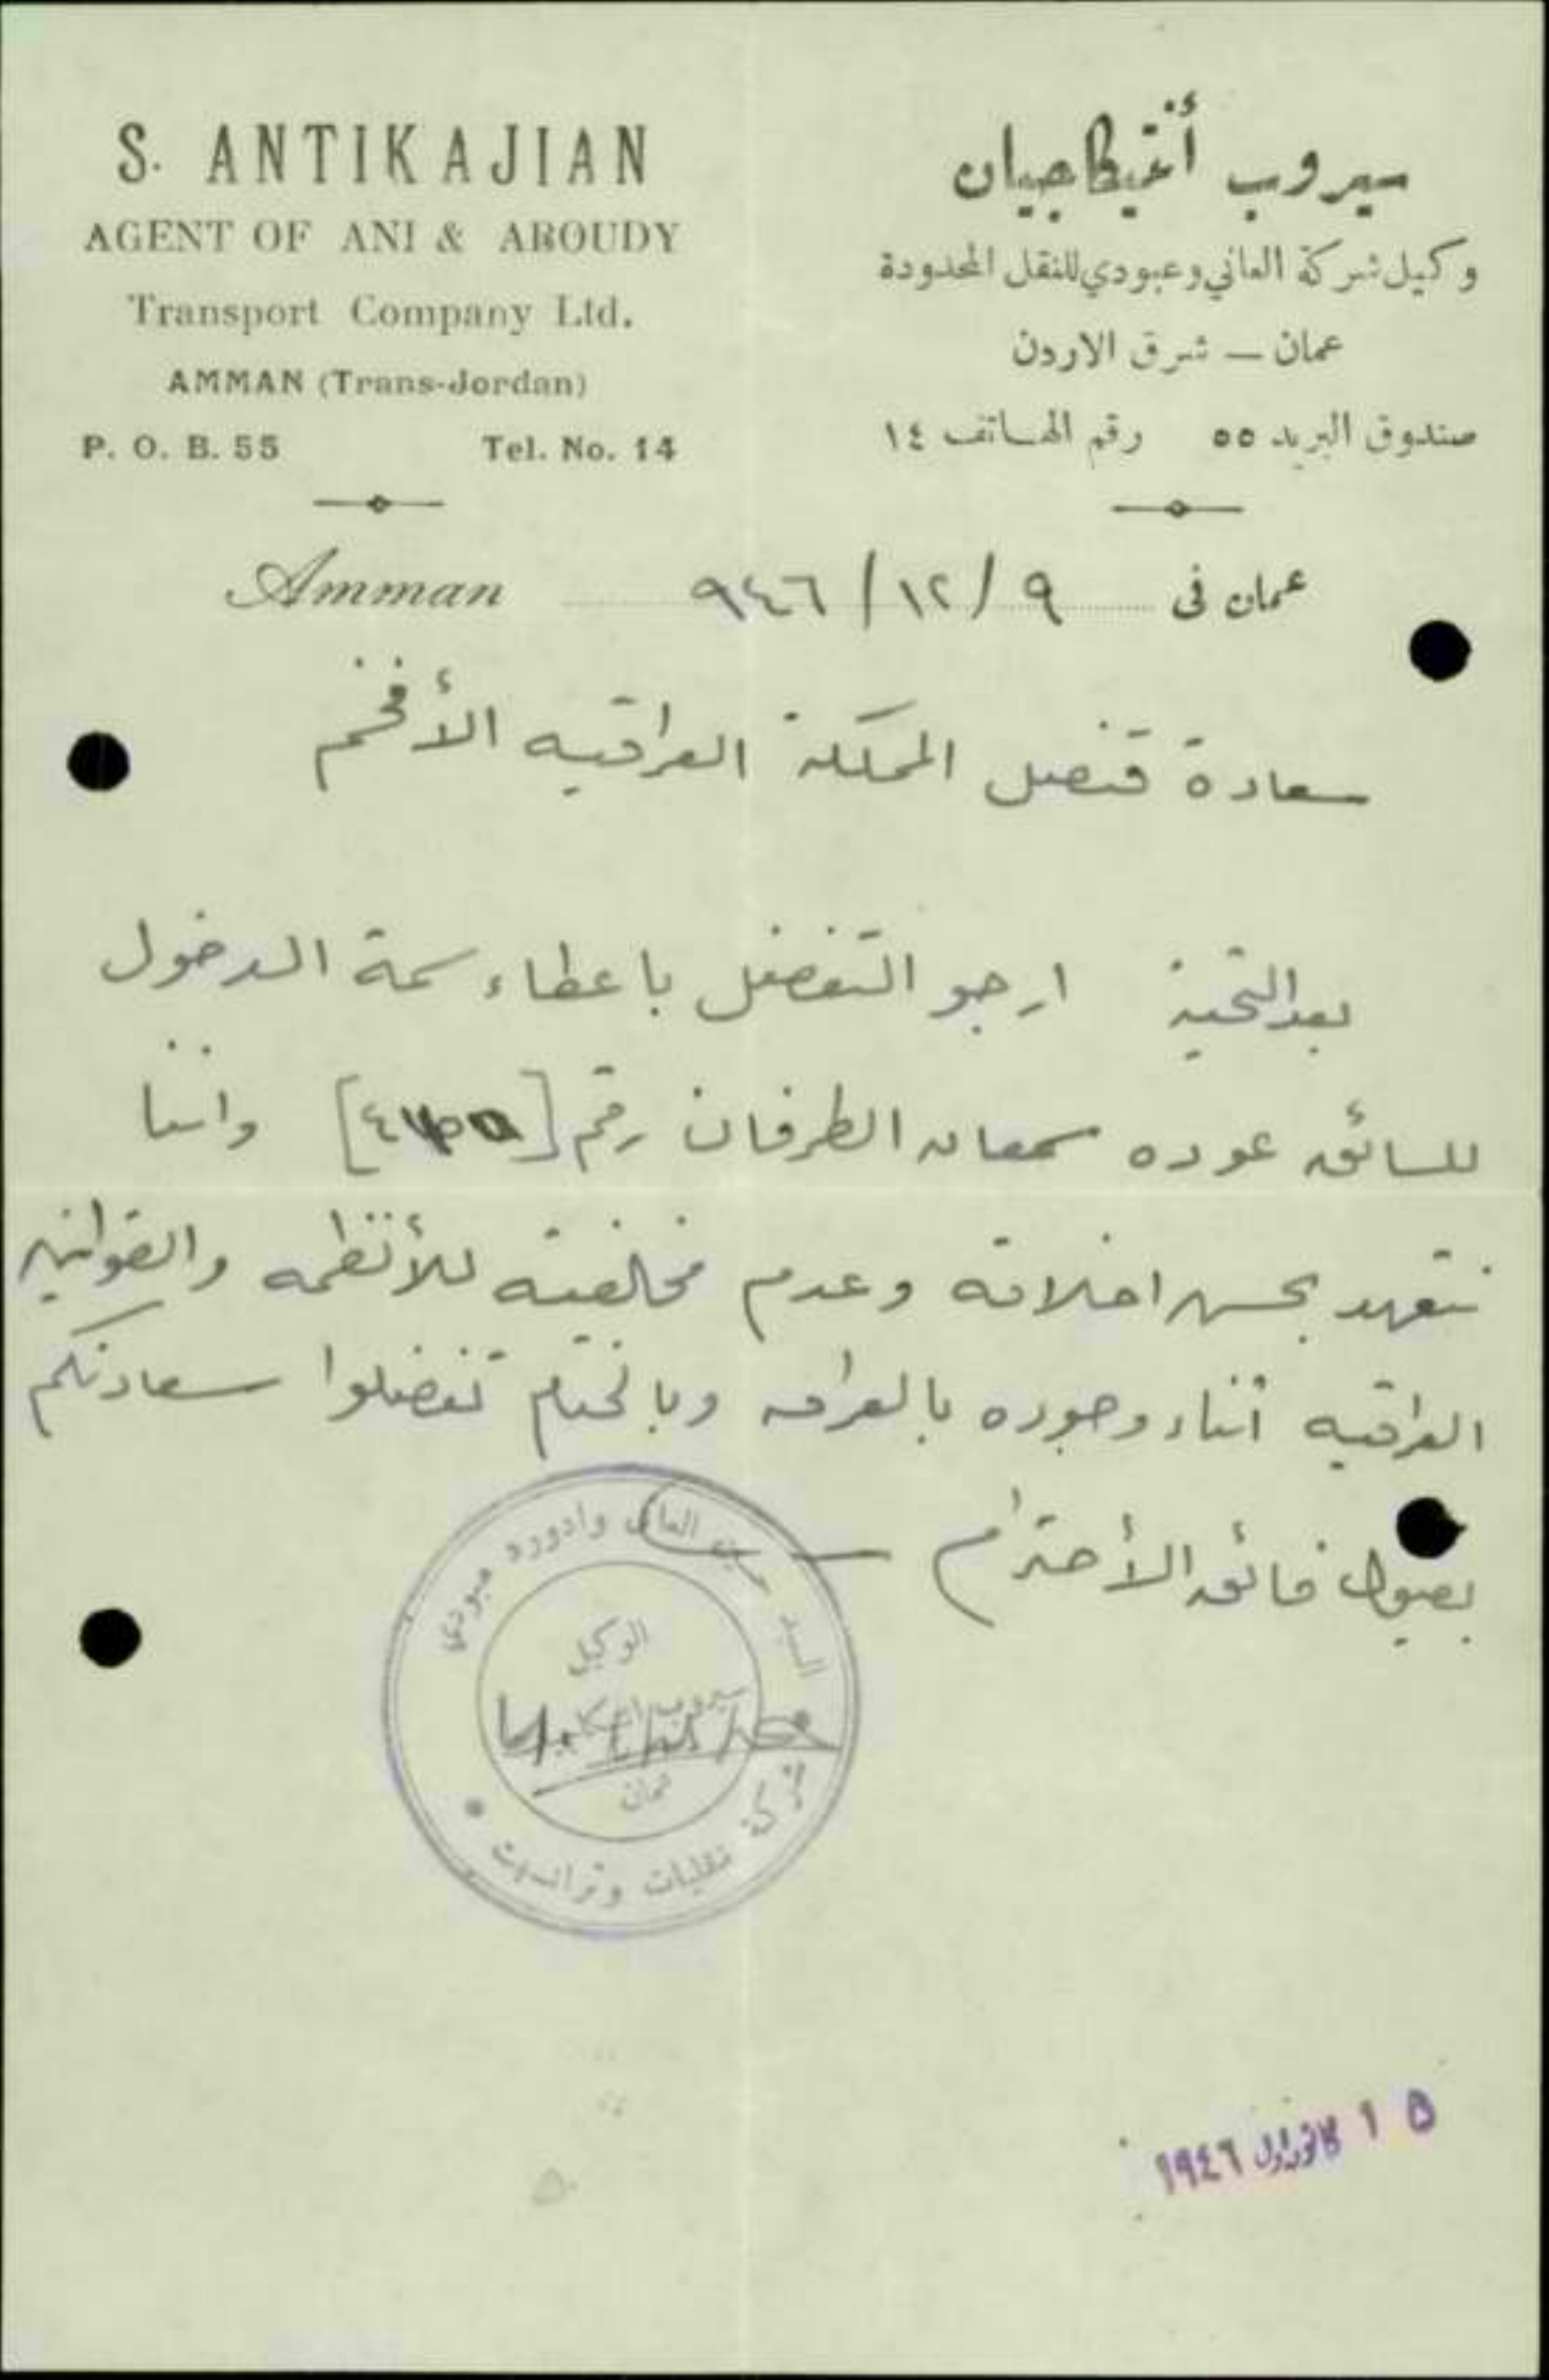 S. ANTIKAJIAN
AGENT OF ANI & ABOUDY
Transport Company Ltd.
AMMAN (Trans-Jordan)
P. O. B. 55 Tel. No. 14
سيروب أنتيكاجيان
وكيل شركة العاني وعبودي للنقل المحدودة
عمان — شرق الاردن
صندوق البريد ٥٥ رقم الهاتف ١٤
Amman
عمان في ٩/١٢/٩٤٦
سعادة قنصل المملكة العراقيه الأفخم
بعد التحية ارجو التفضل باعطاء سمة الدخول
للسائق عوده سمعان الطرفان رقم [ ] واننا
نتعهد بحسن اخلاقه وعدم مخالفيته للأنظمه والقوانين
العراقيه أثناء وجوده بالعراق وبالختام تفضلوا سعادتكم
بقبول فائق الأحترام
السيد العاني وادورد عبودي
الوكيل
سيروب
عمان
شركة نقليات وترانسيت
١٥ كانون الاول ١٩٤٦